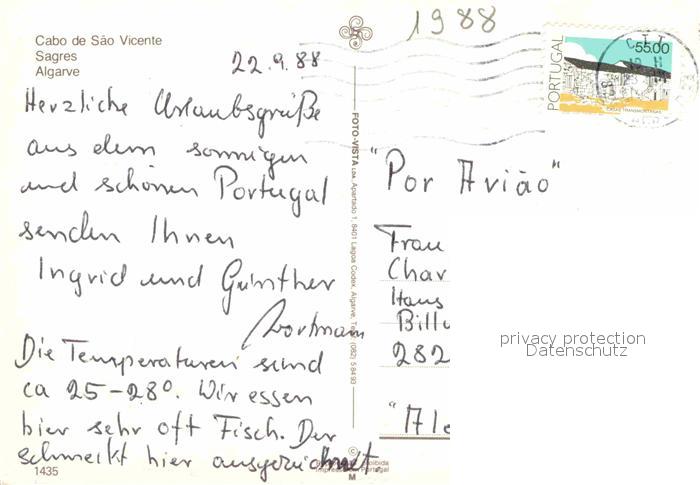 1988
Cabo de São Vicente
Sagres
Algarve
22.9.88
Herzliche Urlaubsgrüße
aus dem sonnigen
und schönen Portugal
senden Ihnen
Ingrid und Günther
Wortmann
Die Temperaturen sind
ca 25-28°. Wir essen
hier sehr oft Fisch. Der
schmeckt hier ausgezeichnet.
1435
FOTO-VISTA LDA. Apartado 1, 8401 Lagoa Codex, Algarve, Tel. (082) 5 84 93
©
M
PORTUGAL
55.00
CASAS TRANSMONTANAS
"Por Avião"
Frau
Char
Haus
Billu
282
"Ale
privacy protection
Datenschutz